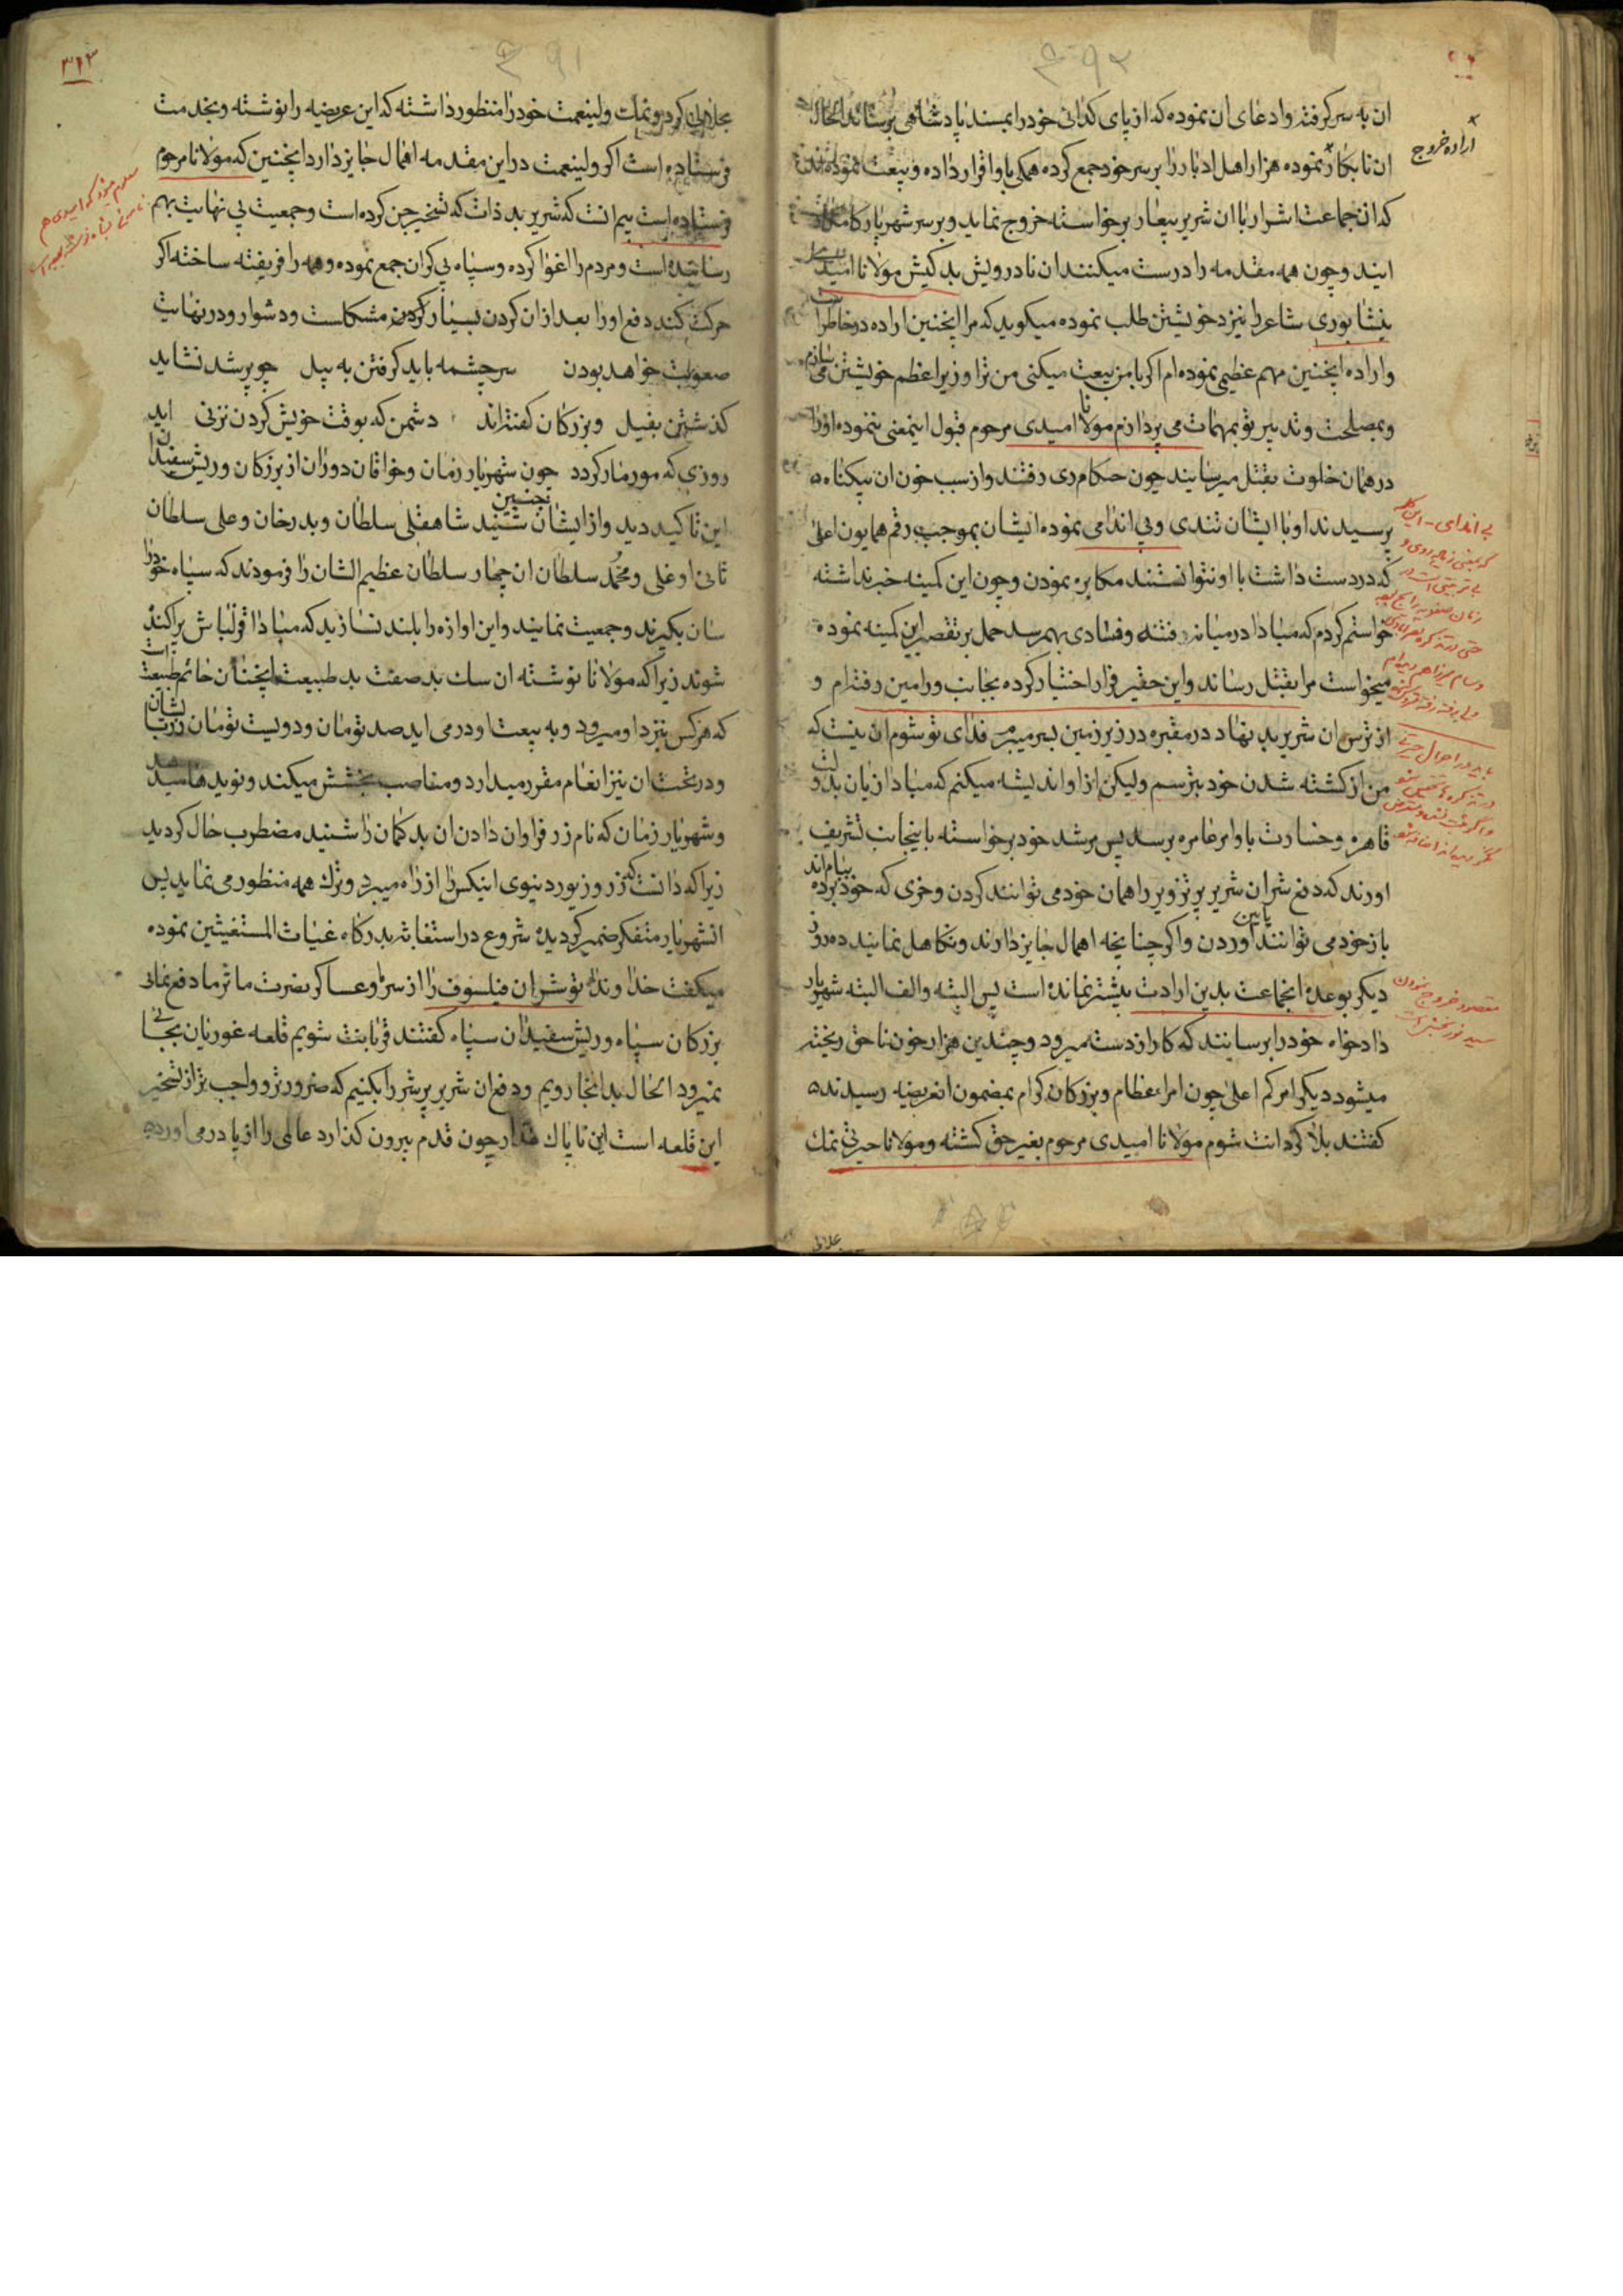 ان به سر کرفته وادعای ان نموده که از پای کدائی خود را بمسند پادشاهی برساند الحال
ان نابکار نموده هزار اهل ادبار را بر سر خود جمع کرده همکی باو اقرار داده و بیعت نموده اند
که ان جماعت اشرار با ان شریر بیعار برخواسته خروج نماید و بر سر شهریار کامکار
ایند و چون همه مقدمه را درست میکنند ان نادرویش بد کیش مولانا امید
نیشابوری شاعر را نیز نزد خویشتن طلب نموده میکوید که مرا اینچنین اراده در خاطر
و اراده اینچنین مهم عظیمی نموده ام اکر با من بیعت میکنی من ترا وزیر اعظم خویشتن می سازم
و بمصلحت و تدبیر تو بمهمات می پردازم مولانا امیدی مرحوم قبول اینمعنی ننموده او را
در همان خلوت بقتل میرسانند چون حکام ری رفتند و از سبب خون ان بیکناه
پرسیدند او با ایشان تندی و بی اندامی نموده ایشان بموجب رقم همایون اعلی
که در دست داشت با او نتوانستند مکابره نمودن و چون این کمینه خبر نداشته
خواستم کردم که مبادا در میانه فتنه و فسادی بهم رسد حمل بر تقصیر این کمینه نموده
میخواست مرا بقتل رساند و این حقیر فرار اختیار کرده بجانب ورامین رفته ام و
از ترس ان شریر بد نهاد در مقبره در زیر زمین بسر میبرم فدای تو شوم ان نیست که
من از کشته شدن خود بترسم ولیکن از او اندیشه میکنم که مبادا زیان بدولت
قاهره و خسارت باوامر عامره برسد پس مرشد خود برخواسته باینجانب تشریف
اورند که دفع شر ان شریر پر تزویر را همان خود می توانند کردن و خری که خود ببام برده اند
باز خود می توانند پایین آوردن و اکر چنانچه اهمال جایز دارند و تکاهل نمایند ده روز
دیکر بوعده انجماعت بدین ارادت بیشتر نمانده است پس البته و الف البته شهریار
دادخواه خود را برسانند که کار از دست میرود و چندین هزار خون ناحق ریخته
میشود دیکر امر کم اعلی چون امراء عظام و بزرکان کرام بمضمون انعریضه رسیدند
کفتند بلا کردانت شوم مولانا امیدی مرحوم بغیر حق کشته و مولانا حیرتی نمک
اراده خروج
مقصود خروج نمودن
سید نوربخش است
۳۴۳
بحلالی کرده و نمک ولینعمت خود را منظور داشته که این عریضه را نوشته و بخدمت
فرستاده است اکر ولینعمت در این مقدمه اهمال جایز دارد اینچنین که مولانا مرحوم
فرستاده است بیم انست که شریر بد ذات که تسخیر جن کرده است و جمعیت بی نهایت بهم
رسانیده است و مردم را اغوا کرده و سپاه بی کران جمع نموده و همه را فریفته ساخته اکر
حرکت کند دفع او را بعد از ان کردن بسیار کردن مشکلست و دشوار و در نهایت
صعوبت خواهد بودن سرچشمه باید کرفتن به بیل چو پر شد نشاید
کذشتن بفیل و بزرکان کفته اند دشمن که بوقت خویش کردن نزنی اید
روزی که مور مار کردد چون شهریار زمان و خواقان دوران از بزرکان و ریش سفیدان
این تاکید دید و از ایشان چنین شنید شاهقلی سلطان و بدر خان و علی سلطان
تاتی اوغلی و محمد سلطان ان چهار سلطان عظیم الشان را فرمودند که سپاه خود را
سان بکیرند و جمعیت نمایند و این اوازه را بلند نسازید که مبادا قزلباش پراکنده
شوند زیرا که مولانا نوشته ان سک بد صفت بد طبیعت انچنان حاتم طبیعت است
که هر کس بنزد او میرود و به بیعت او در می اید صد تومان و دویست تومان زر بایشان
و در تحت ان نیز انعام مقرر میدارد و مناصب بخشش میکند و نوید ها میدهد
و شهریار زمان که نام زر فراوان دادن ان بد کمان را شنید مضطرب حال کردید
زیرا که دانست که زر و زیور دنیوی اینکس را از راه میبرد و ترک همه منظور می نماید پس
انشهریار متفکر ضمیر کردیده شروع در استغاثه بدرکاه غیاث المستغیثین نموده
میکفت خداوندا تو شر ان فیلسوف را از سر ما و عساکر نصرت ماثر ما دفع نمای
بزرکان سپاه و ریش سفیدان سپاه کفتند قربانت شویم قلعه غوریان بجائی
نمیرود الحال بد انجا رویم و دفع ان شریر پر شر را بکنیم که ضرورتر و واجب تر از تسخیر
این قلعه است این ناپاک غدار چون قدم بیرون کذارد عالمی را از پا در می اورد